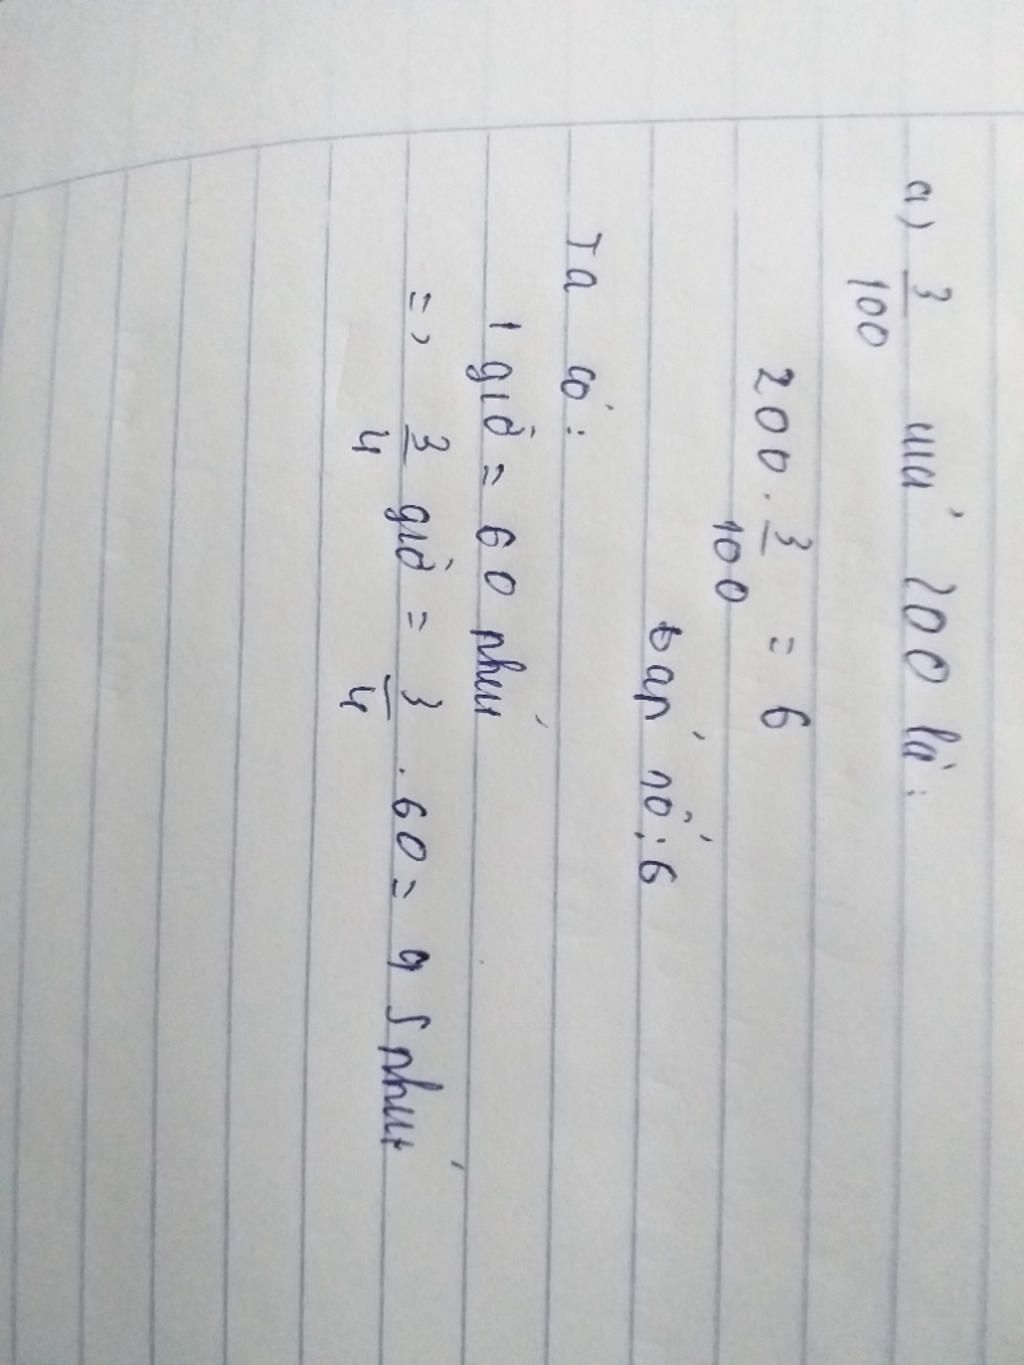 a) 3/100 của 200 là:
200 . 3/100 = 6
Đáp số: 6
Ta có:
1 giờ = 60 phút
=> 3/4 giờ = 3/4 . 60 = 45 phút